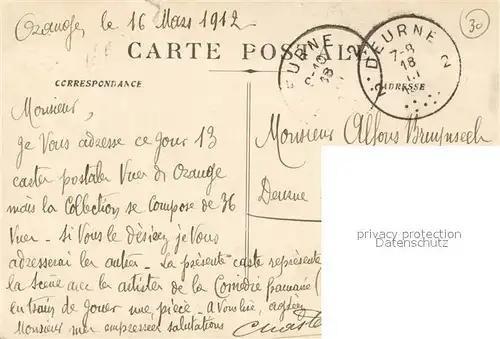 Orange, le 16 Mars 1912
30
CARTE POSTALE
DEURNE 2
7-8
18
III
DEURNE 2
18
CORRESPONDANCE
ADRESSE
Monsieur,
Je Vous adresse ce jour 13
cartes postales Vues de Orange
mais la Collection se compose de 36
Vues - Si Vous le désirez je Vous
adresserai les autres - La présente carte représente
la scène avec les artistes de la Comédie française (
en train de jouer une pièce - a Vous lire, agréez
Monsieur mes empressées salutations
Monsieur Alfons Bruynseels
Deurne
privacy protection
Datenschutz